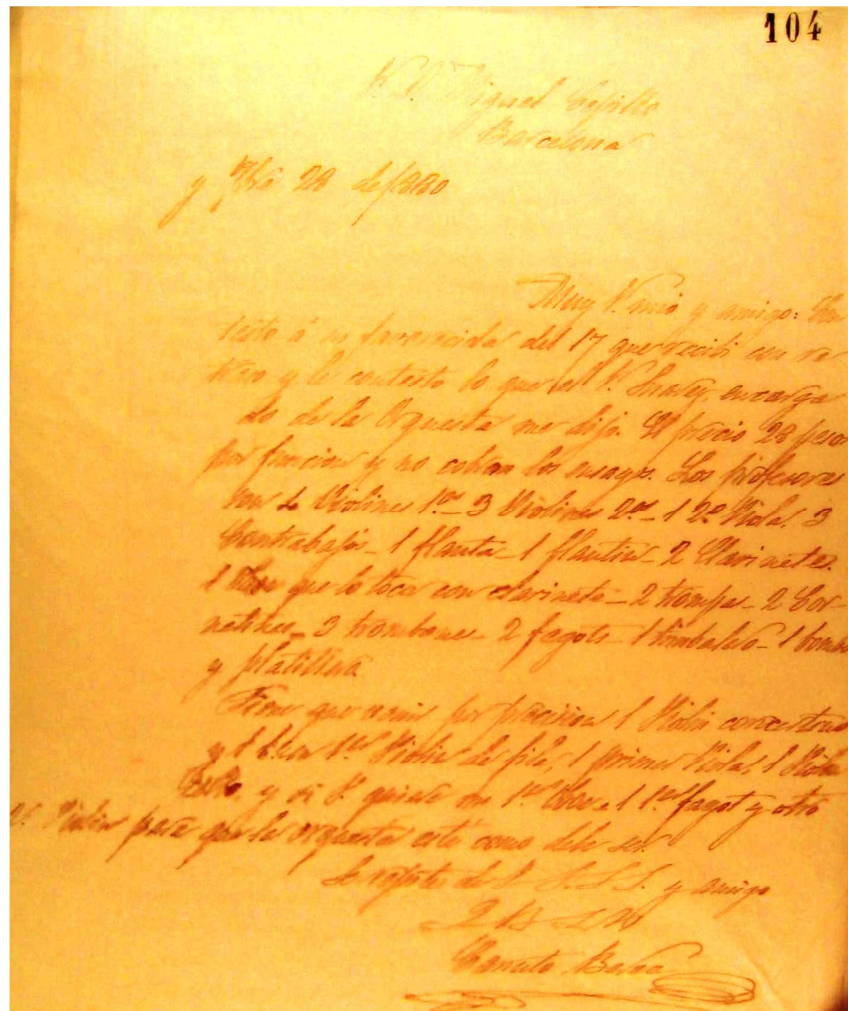 104
S. Dn Miguel
Barcelona
y 28 de 1880
Muy S. mio y amigo: Con
testo á su favorecida del 17 que recibí con re
traso y le contesto lo que el S. Suarez, encarga
do de la Orquesta me dijo. El precio 28 pesos
por funcion y no cobran los ensayos. Los profesores
son 4 Violines 1os - 3 Violines 2os - 1 2a Viola. 3
Contrabajos - 1 flauta - 1 flautin - 2 Clarinetes.
1 Oboe que lo toca con clarinete - 2 trompas - 2 Cor
netines - 3 trombones - 2 fagots - 1 timbalero - 1 bombo
y platillos
Tiene que venir por precision 1 Violin concertino
y 1 buen 1er Violin de fila, 1 primer Viola, 1 Violon
y si V. quiere un 1er Oboe. 1 1er fagot y otro
Violin para que la orquesta esté como debe ser.
Se repite de V. S. S. S. y amigo
Q B S M
Canuto Berea